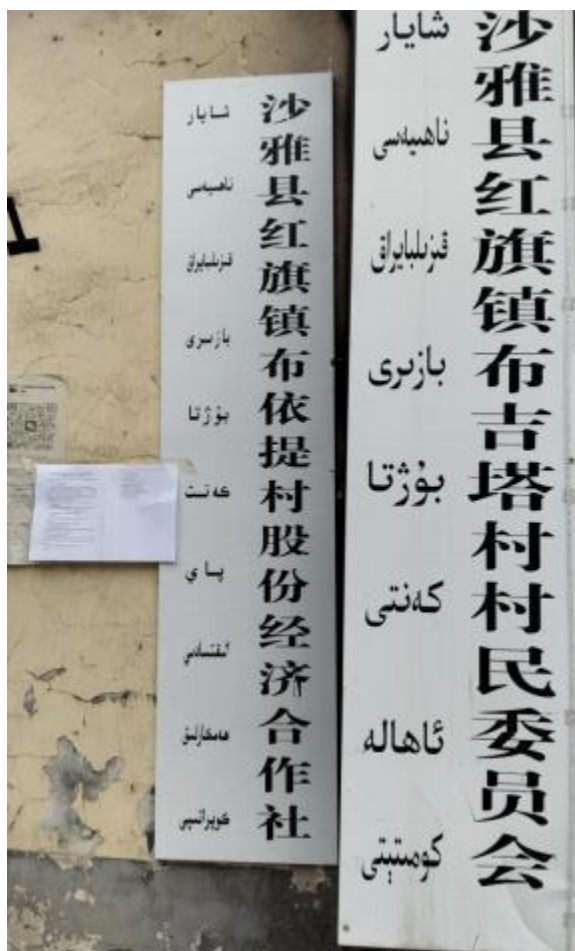 沙雅县红旗镇布依提村股份经济合作社
شايار
ناھىيەسى
قىزىلبايراق
بازىرى
بۇژتا
كەنت
پاي
ھەمكارلىق
沙雅县红旗镇布吉塔村村民委员会
شايار
ناھىيەسى
قىزىلبايراق
بازىرى
بۇژتا
كەنتى
ئاھالە
كومىتېتى